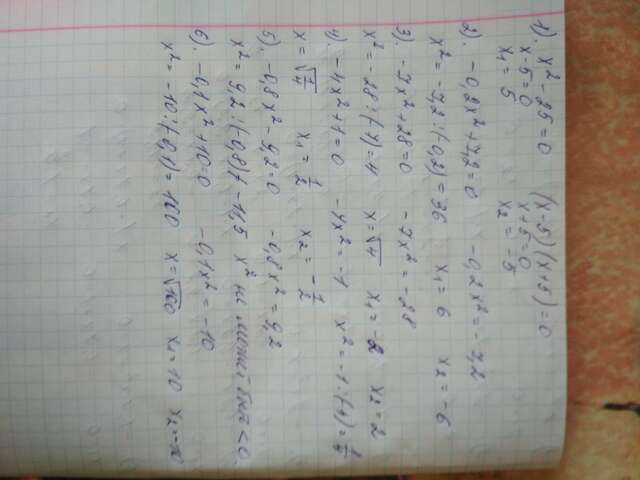 1). x² - 25 = 0 (x-5)(x+5)=0
x-5=0 x+5=0
x₁ = 5 x₂ = -5
2). -0,2x²+7,2=0 -0,2x² = -7,2
x² = -7,2:(-0,2) = 36 x₁ = 6 x₂ = -6
3). -7x²+28=0 -7x² = -28
x² = -28:(-7)=4 x=√4 x₁ = -2 x₂ = 2
4). -4x²+1=0 -4x² = -1 x² = -1:(-4) = 1/4
x = √1/4 x₁ = 1/2 x₂ = -1/2
5). -0,8x² - 9,2=0 -0,8x² = 9,2
x² = 9,2:(-0,8) = -11,5 x² не может быть <0.
6). -0,1x²+10=0 -0,1x² = -10
x² = -10:(-0,1)=100 x=√100 x₁=10 x₂=-10